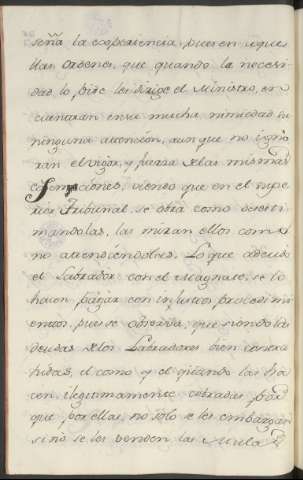 seña la experiencia, pues en aque
llas ordenes, que quando la necesi
dad lo pide les dirige el Ministro, en
cuentran en su mucha nimiedad
ninguna atencion, aun que no igno
ran el vigor, y fuerza de las mismas
exempciones, viendo que en el supe
rior Tribunal, se obra como desesti
mandolas, las miran ellos como
no atendiendoles. Lo que adeuda
el Labrador con el Magnate, se lo
hacen pagar con injustos procedimi
entos, pues se observa, que siendo las
deudas de los Labradores bien contra
hidas, el como y el quando las ha
cen ilegitimamente cobradas por
que por ellas, no solo se les embargan
sino se les venden las Mulas